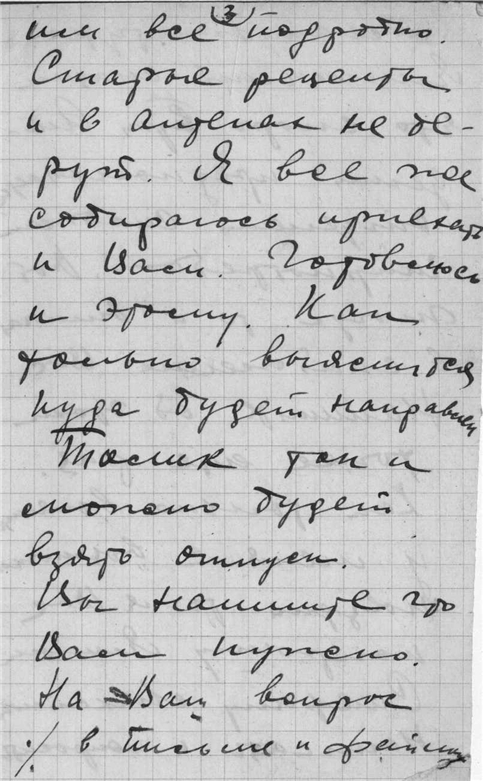 3
им все подробно.
Старые рецепты
и в аптеках не бе-
рут. Я все же
собираюсь приехать
к Вам. Готовлюсь
к этому. Как
только выяснится
куда будет направлен
Толик так и
можно будет
взять отпуск.
Вы напишите что
Вам нужно.
На Ваш вопрос
в письме к